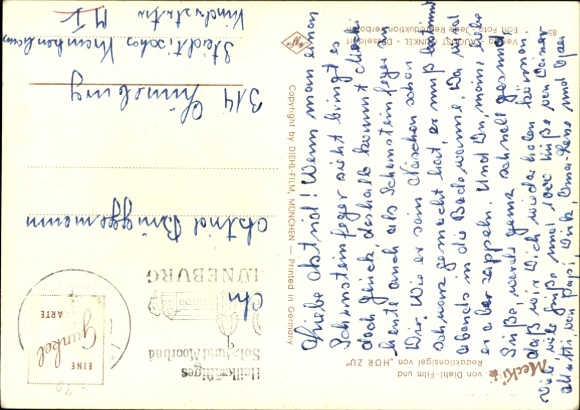 Liebe Astrid! Wenn man einen
Schornsteinfeger sieht bringt es
doch Glück, deshalb kommt Mecki
heute auch als Schornsteinfeger zu
Dir. Wie er sein Näschen schön
schwarz gemacht hat, er muß heute
abend in die Badewanne. Da wird
er aber zappeln. Und Du, meine liebe
Süße, werde ganz schnell gesund
daß wir Dich wiederholen können.
Viele, viele Grüße und 1000 Küße von Deiner
Mutti, von Papi, Dirk, Oma Lene und Opa
Astrid Brüggemann
314 Lüneburg
Städtisches Krankenhaus
Kinderstation
M I
LÜNEBURG
Heilkräftiges
Sole- und Moorbad
EINE
Gunkel
KARTE
Copyright by DIEHL-FILM, MÜNCHEN — Printed in Germany
Verlag AUGUST GUNKEL - Düsseldorf
Echt Foto. Jede Reproduktion verboten
Agfa
Mecki
von Diehl-Film und
Redaktionsigel von „HÖR ZU"